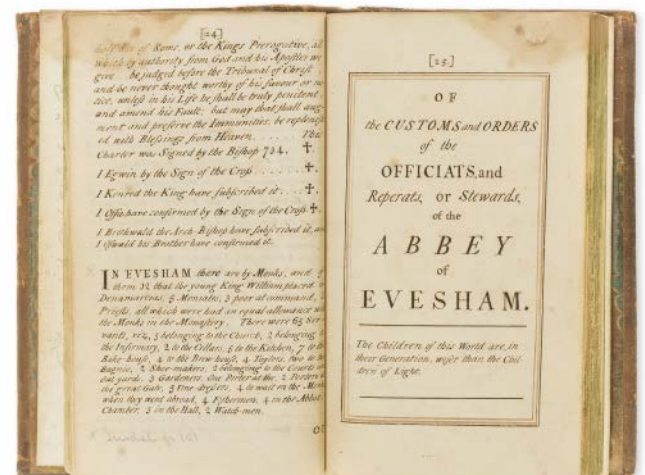 [24]
holy See of Rome, or the Kings Prerogative, all
which by authority from God and his Apostles we
give be judged before the Tribunal of Christ
and be never thought worthy of his favour or
unless in his Life he shall be truly penitent
and amend his Fault; but may that shall aug-
ment and preserve the Immunities, be replenish-
ed with Blessings from Heaven. . . . . . This
Charter was Signed by the Bishop 7 4. ✝.
I Egwin by the Sign of the Cross . . . . . . . ✝.
I Kenred the King have subscribed it . . . ✝.
I Offa have confirmed by the Sign of the Cross ✝.
I Brothwald the Arch-Bishop have subscribed it, and
I Oswald his Brother have confirmed it.
IN EVESHAM there are by Monks, and of
them 12 that the young King William placed
5 Mensales, 3 poor at command,
Priests, all which were had an equal allowance with
the Monks in the Monastery. There were 65 Ser-
vants, viz, 5 belonging to the Church, 2 belonging to
the Infirmary, 2 to the Cellars, 5 to the Kitchen, 7 to the
Bake house, 4 to the Brew house, 4 Taylors, two to the
Bagnio, 2 Shoe-makers, 2 belonging to the Courts
out yards, 3 Gardeners. One Porter at the. 2 Porters
the great Gate, 5 Vine-dressers, 4 to wait on the Monks
when they went abroad, 4 Fishermen, 4 in the Abbot
Chamber, 3 in the Hall, 2 Watch-men.
[25.]
OF
the CUSTOMS and ORDERS
of the
OFFICIATS, and
Reperats, or Stewards,
of the
ABBEY
of
EVESHAM.
The Children of this World are, in
their Generation, wiser than the Chil-
dren of Light.